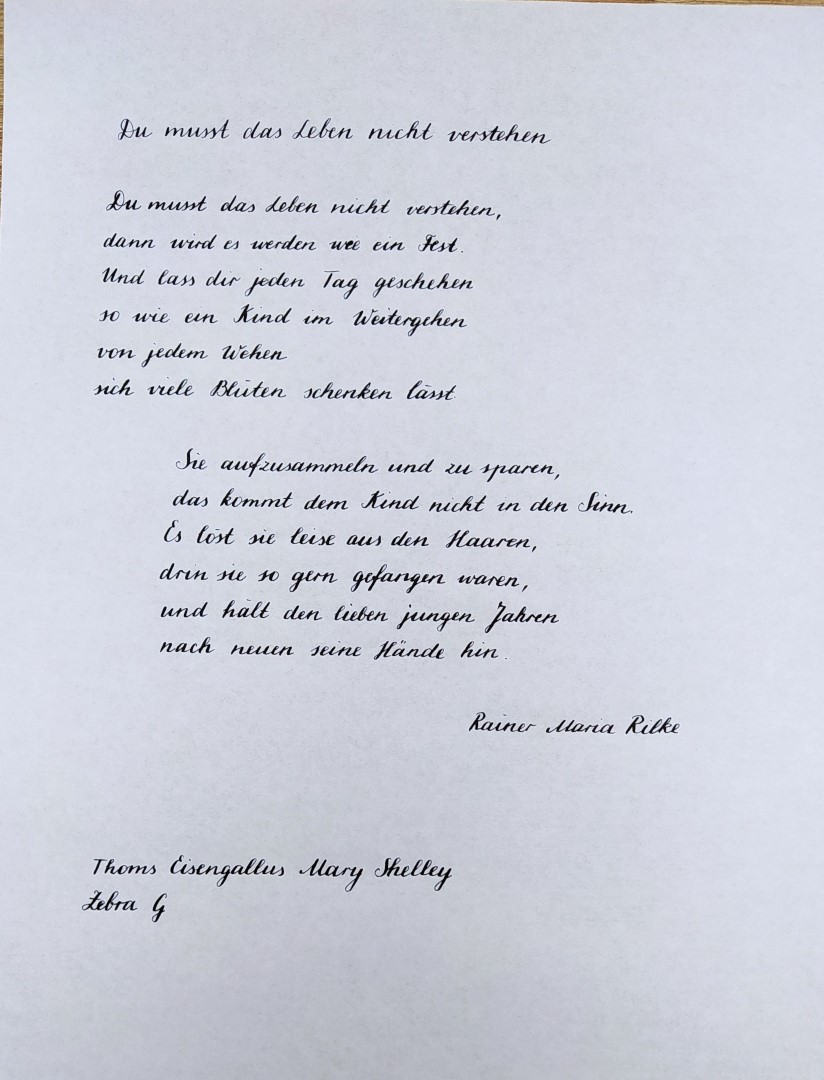 Du musst das Leben nicht verstehen
Du musst das Leben nicht verstehen,
dann wird es werden wie ein Fest.
Und lass dir jeden Tag geschehen
so wie ein Kind im Weitergehen
von jedem Wehen
sich viele Blüten schenken lässt
Sie aufzusammeln und zu sparen,
das kommt dem Kind nicht in den Sinn.
Es löst sie leise aus den Haaren,
drin sie so gern gefangen waren,
und hält den lieben jungen Jahren
nach neuen seine Hände hin.
Rainer Maria Rilke
Thoms Eisengallus Mary Shelley
Zebra G